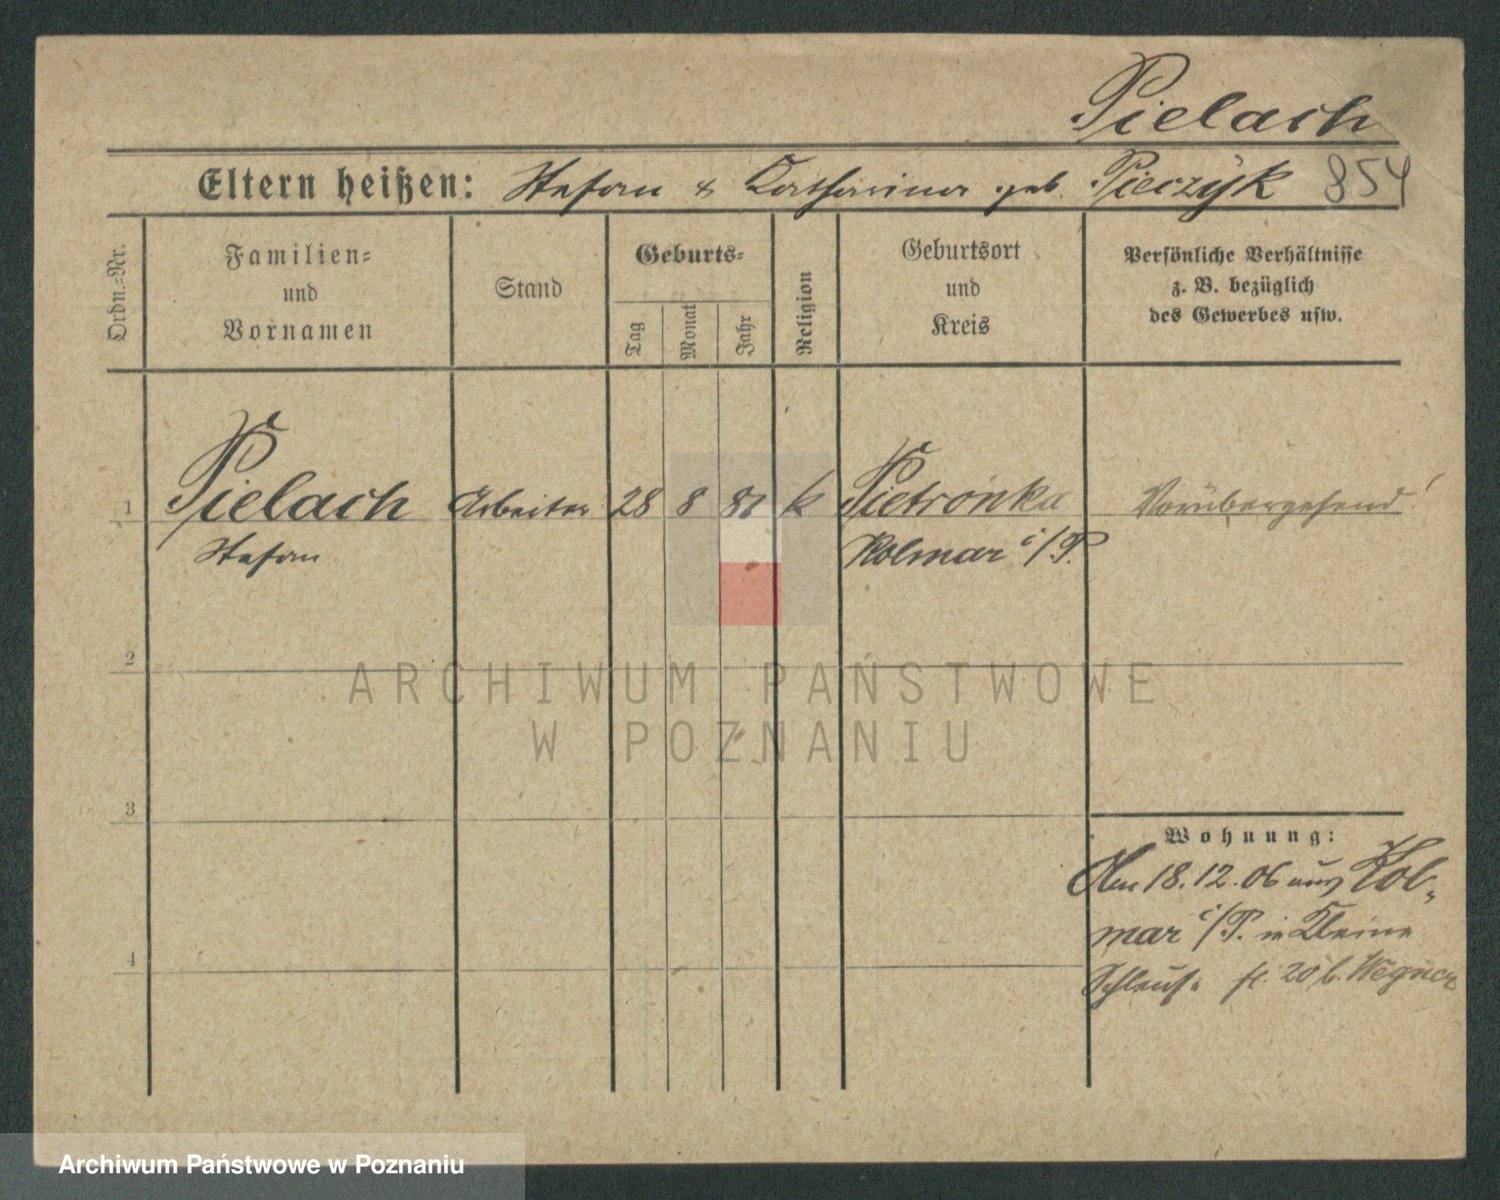 Pielach
Eltern heißen: Stefan & Katharina geb. Pieczyk 854
Ordn.=Nr.
Familien=
und
Vornamen
Stand
Geburts=
Tag
Monat
Jahr
Religion
Geburtsort
und
Kreis
Persönliche Verhältnisse
z. B. bezüglich
des Gewerbes usw.
1 Pielach Arbeiter 28 8 81 k Pietronka Vorübergehend!
Stefan Kolmar i/P.
2
3
4
Wohnung:
Am 18.12.06 aus Kol-
mar i/P. in Kleine
Schleus. st. 20 b. Wegner
ARCHIWUM PAŃSTWOWE
W POZNANIU
Archiwum Państwowe w Poznaniu